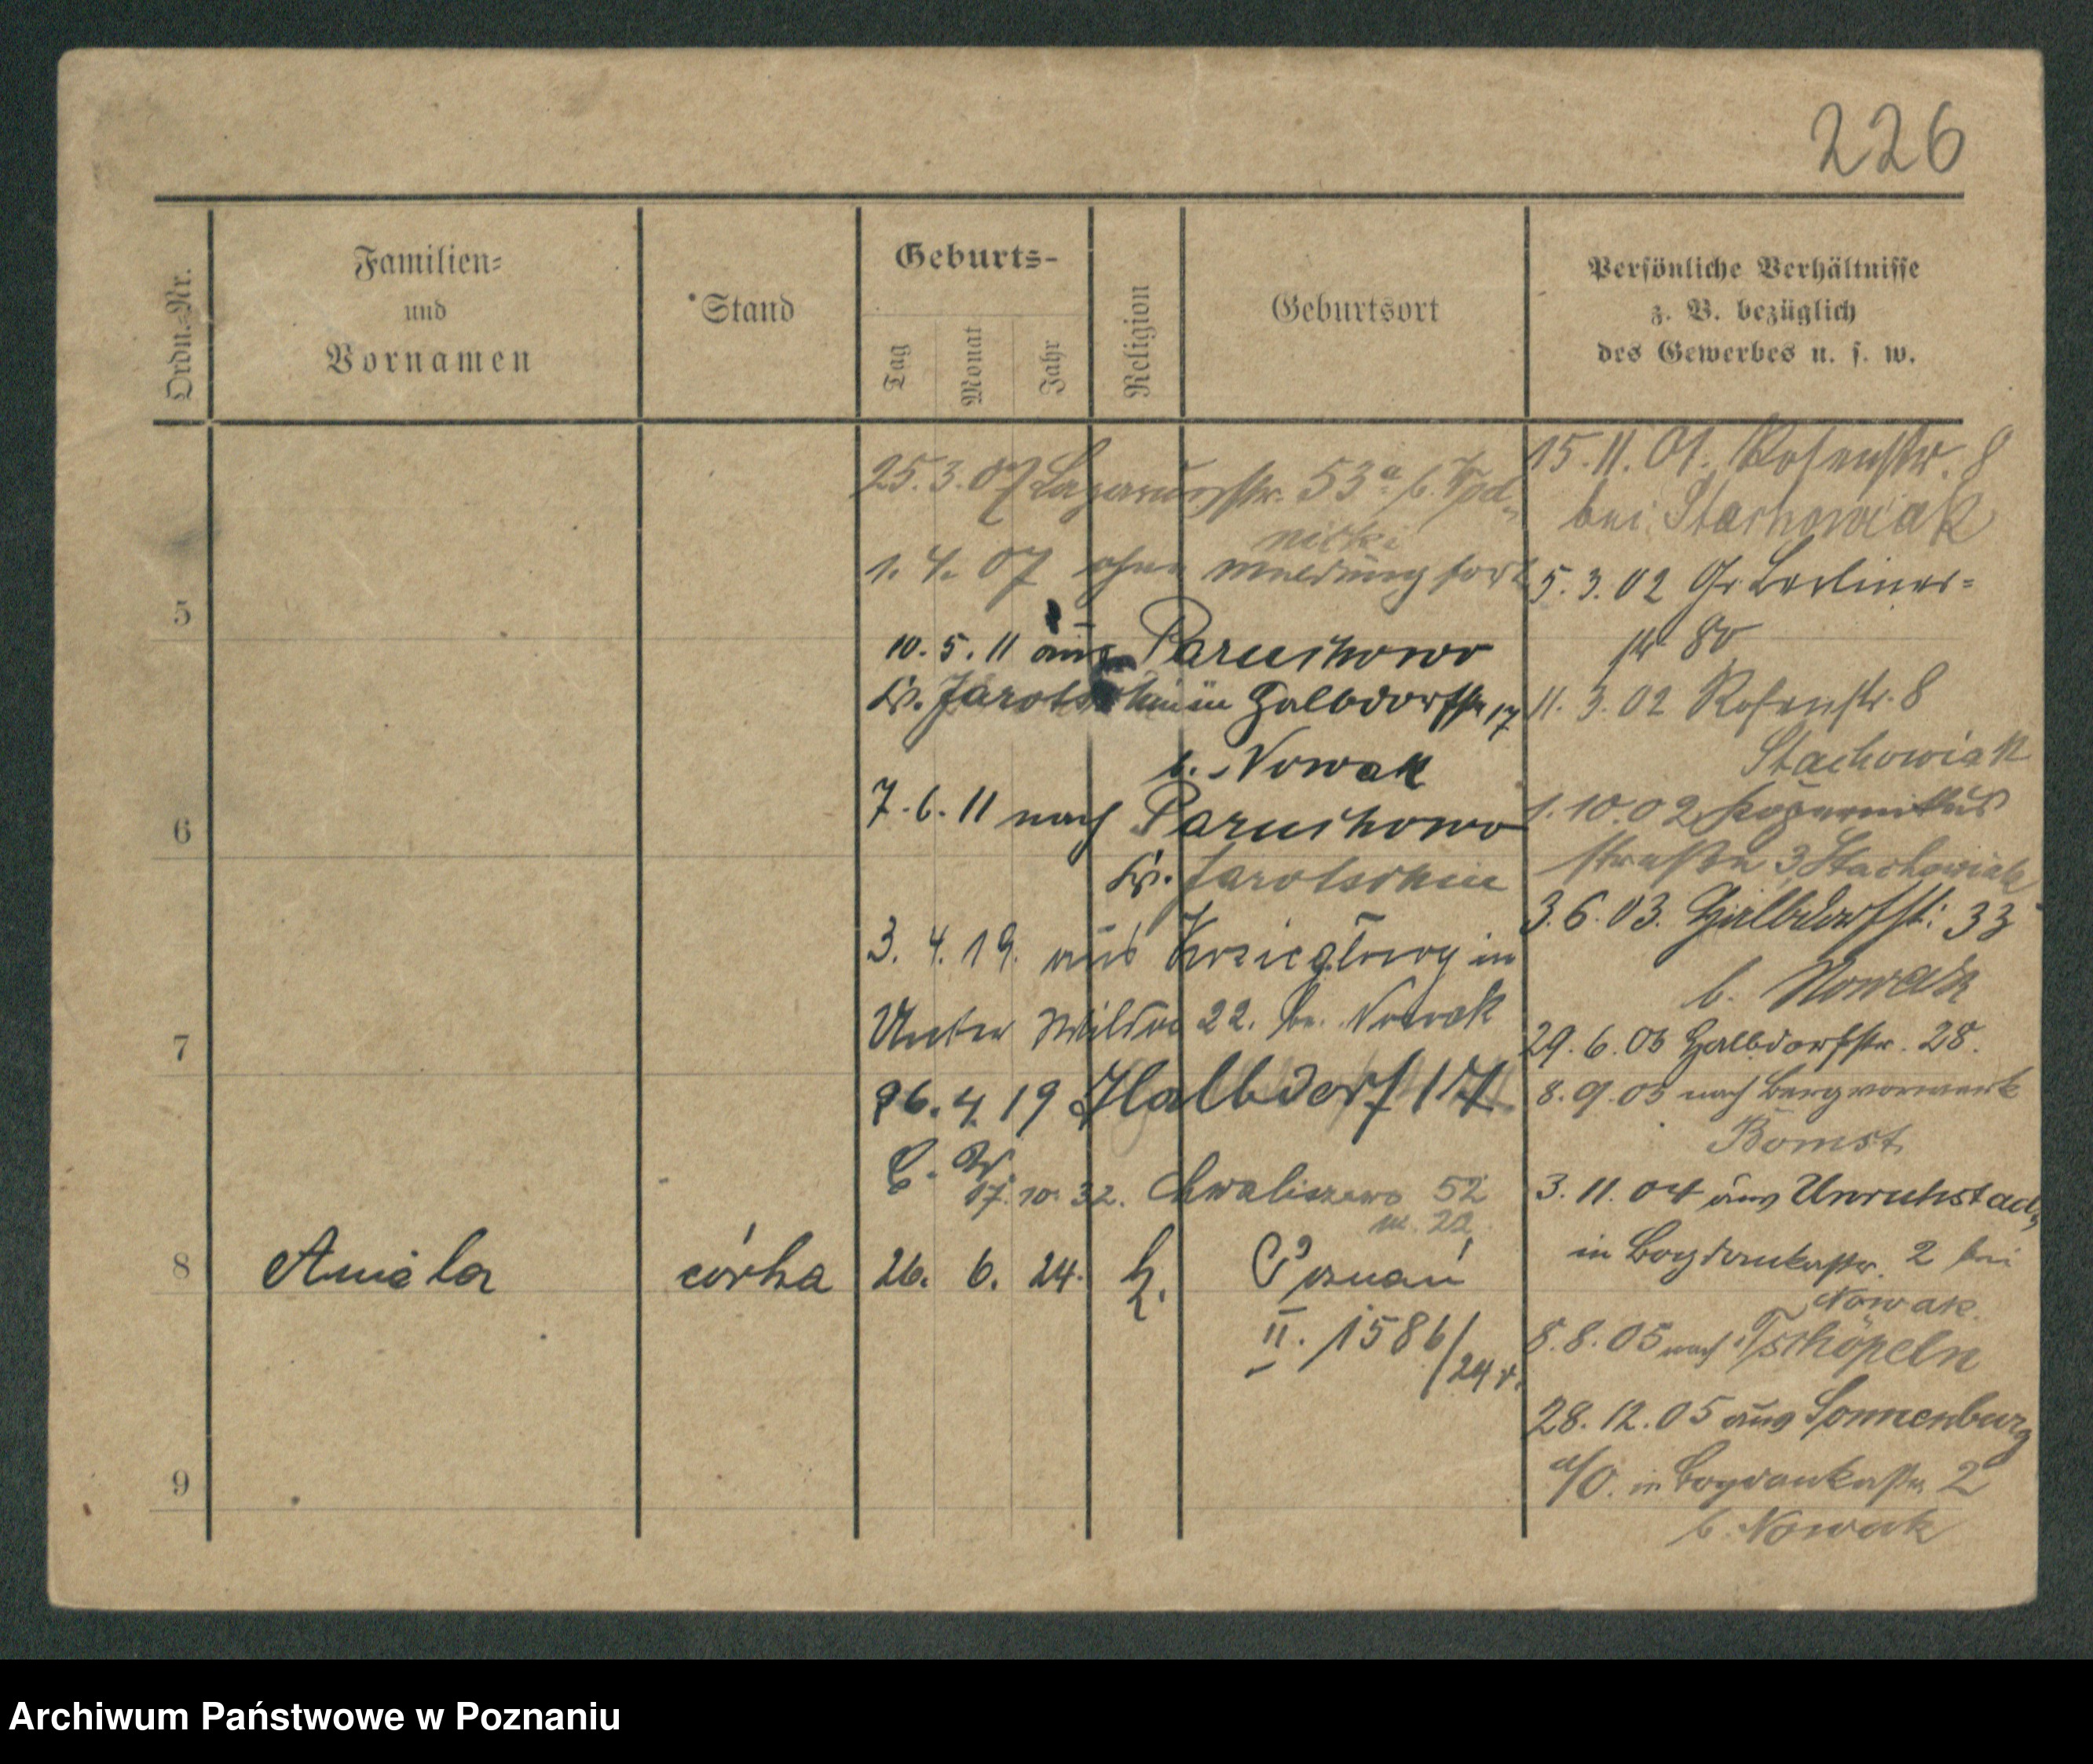 226
Ordn.-Nr.
Familien-
und
Vornamen
Stand
Geburts-
Tag
Monat
Jahr
Religion
Geburtsort
Persönliche Verhältnisse
z. B. bezüglich
des Gewerbes u. s. w.
25.3.07 Lazarusstr. 53a b.
nicki
1. 4. 07 ohne meldung fort
5
10. 5. 11 aus Paruchowo
Kr. Jarotschin in Halbdorfstr 17
b. Nowak
7. 6. 11 nach Paruchowo
6
Kr. Jarotschin
3. 4. 19. aus in
Unter Wilda 22. b. Nowak
7
26. 4. 19 Halbdorf 17
17. 10. 32. Chwaliszewo 52
m. 22
8
Aniela
córka
26. 6. 24.
k.
Poznań
II. 1586/24 r.
9
15. 11. 01. Rosenstr. 8
bei Stachowiak
5. 3. 02 Gr Berliner-
str 80
11. 3. 02 Rosenstr. 8
Stachowiak
1. 10. 02
straße 3, Stachowiak
3. 6. 03. Halbdorfst: 33
b. Nowak
29. 6. 03 Halbdorfstr. 28.
8. 9. 03 nach Bergvorwerk
Bomst
3. 11. 04 aus Unruhstadt
in Bogdankastr. 2 bei
Nowak.
8. 8. 05 nach Tschöpeln
28. 12. 05 aus Sonnenburg
a/O. in Bogdankastr. 2
b. Nowak
Archiwum Państwowe w Poznaniu